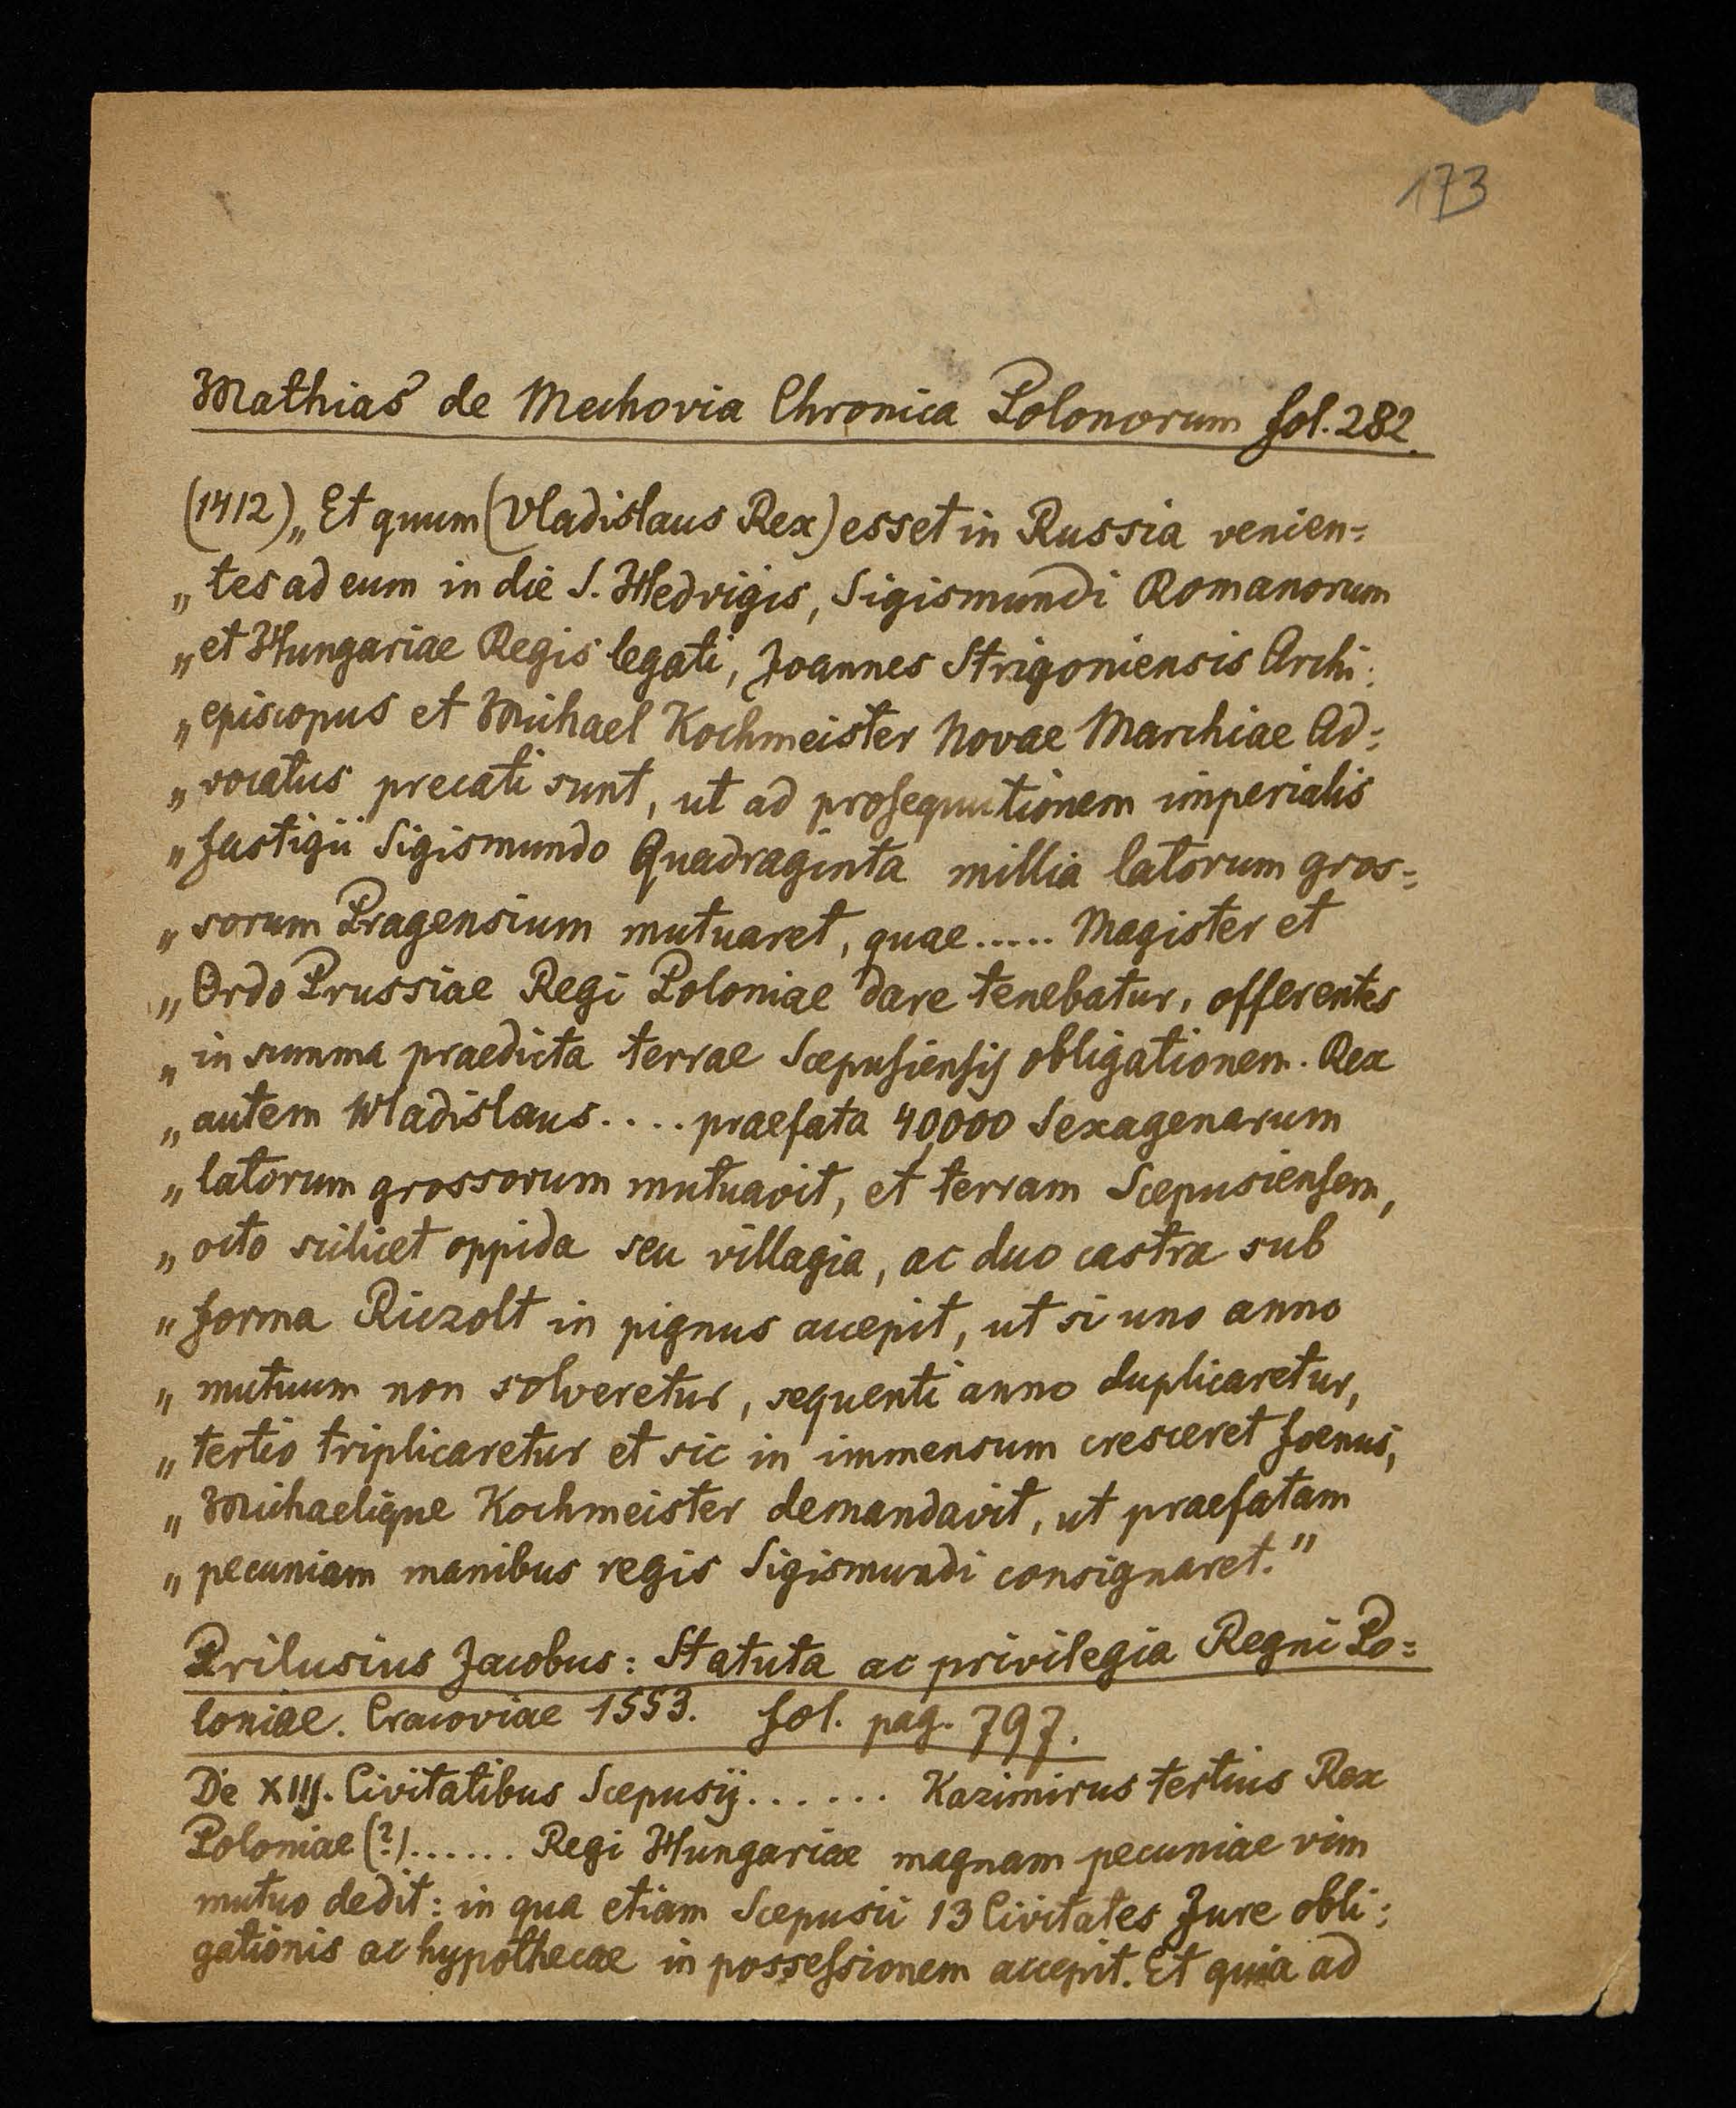 173
Mathias de Mechovia Chronica Polonorum fol. 282.
(1412) „Et quum (Vladislaus Rex) esset in Russia venien=
„tes ad eum in die S. Hedvigis, Sigismundi Romanorum
„et Hungariae Regis legati, Joannes Strigoniensis Archi:
„episcopus et Michael Kochmeister Novae Marchiae Ad=
„vocatus precati sunt, ut ad prosequutionem imperialis
„fastigii Sigismundo Quadraginta millia latorum gros=
„sorum Pragensium mutuaret, quae ..... Magister et
„Ordo Prussiae Regi Poloniae dare tenebatur, offerentes
„in summa praedicta terrae Scepusiensis obligationem. Rex
„autem Wladislaus .... praefata 40,000 Sexagenarum
„latorum grossorum mutuavit, et terram Scepusiensem,
„octo scilicet oppida seu villagia, ac duo castra sub
„forma Riczolt in pignus accepit, ut si uno anno
„mutuum non solveretur, sequenti anno duplicaretur,
„tertio triplicaretur et sic in immensum cresceret foenus,
„Michaelique Kochmeister demandavit, ut praefatam
„pecuniam manibus regis Sigismundi consignaret."
Prilusius Jacobus: Statuta ac privilegia Regni Po=
loniae. Cracoviae 1553. fol. pag. 797.
De XIIJ. Civitatibus Scepusij ...... Kazimirus tertius Rex
Poloniae (?) ...... Regi Hungariae magnam pecuniae vim
mutuo dedit: in qua etiam Scepusii 13 Civitates Jure obli:
gationis ac hypothecae in possessionem accepit. Et quia ad